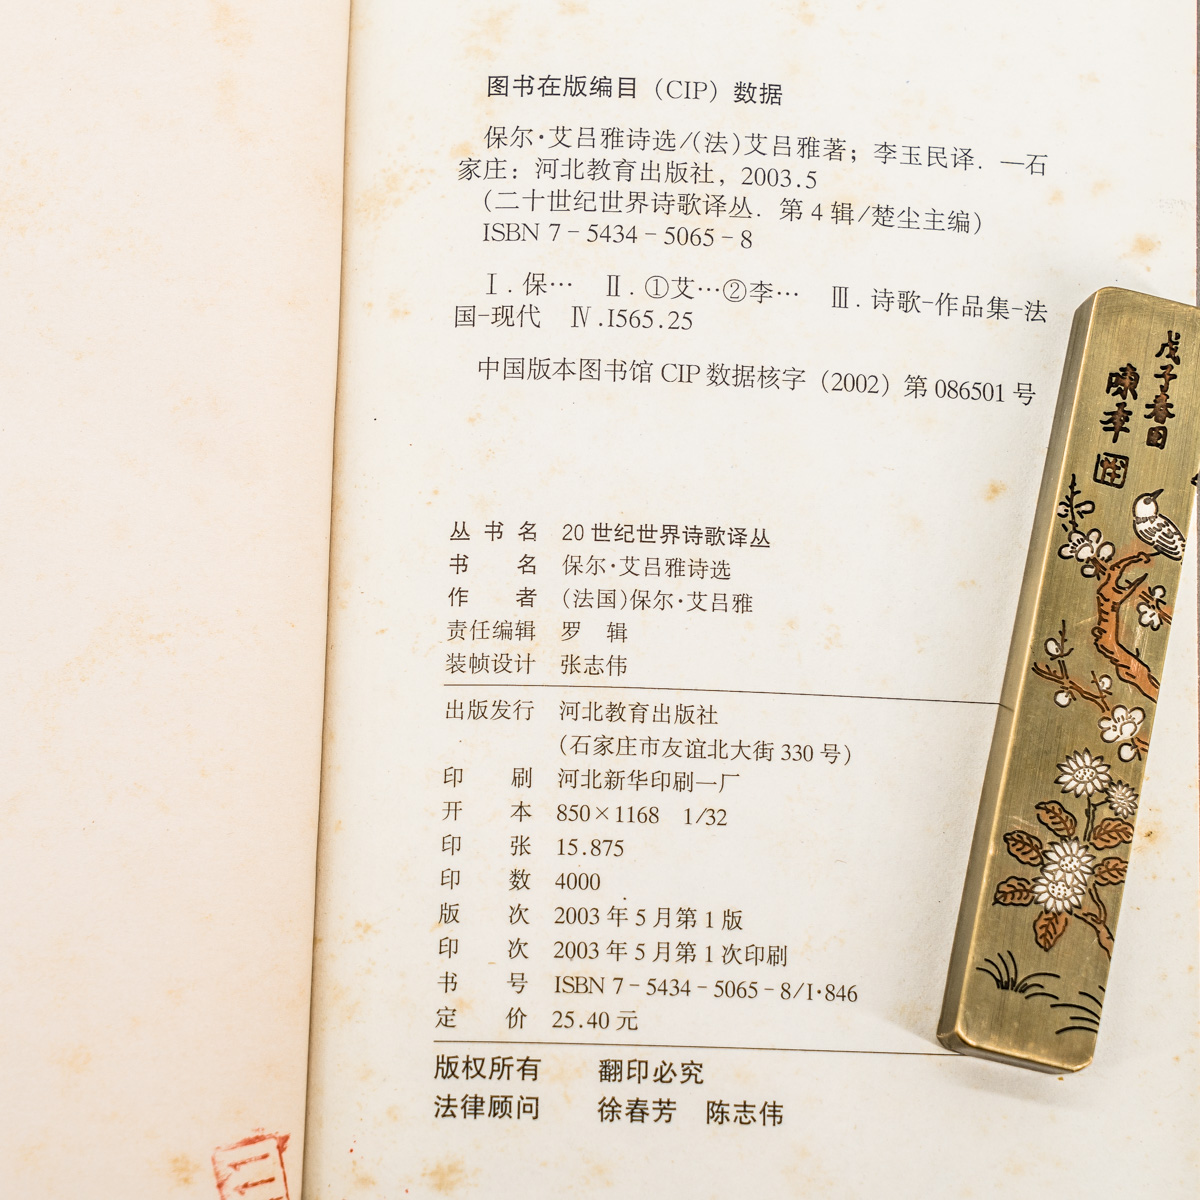 图书在版编目（CIP）数据
保尔·艾吕雅诗选/(法)艾吕雅著；李玉民译. —石
家庄：河北教育出版社，2003.5
(二十世纪世界诗歌译丛. 第 4 辑/楚尘主编)
ISBN 7-5434-5065-8
Ⅰ.保… Ⅱ.①艾…②李… Ⅲ.诗歌-作品集-法
国-现代 Ⅳ.I565.25
中国版本图书馆 CIP 数据核字（2002）第 086501 号
丛书名 20 世纪世界诗歌译丛
书名 保尔·艾吕雅诗选
作者 (法国)保尔·艾吕雅
责任编辑 罗 辑
装帧设计 张志伟
出版发行 河北教育出版社
(石家庄市友谊北大街 330 号)
印刷 河北新华印刷一厂
开本 850×1168 1/32
印张 15.875
印数 4000
版次 2003 年 5 月第 1 版
印次 2003 年 5 月第 1 次印刷
书号 ISBN 7-5434-5065-8/I·846
定价 25.40 元
版权所有 翻印必究
法律顾问 徐春芳 陈志伟
戊子春日